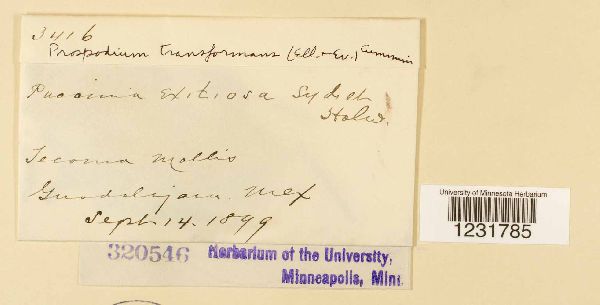 3416
Prospodium transformans (Ell. & Ev.) Cummins
Puccinia exitiosa Syd et
Holw.
Tecoma mollis
Guadalajara. Mex
Sept 14. 1899
320546 Herbarium of the University,
Minneapolis, Minn
University of Minnesota Herbarium
1231785